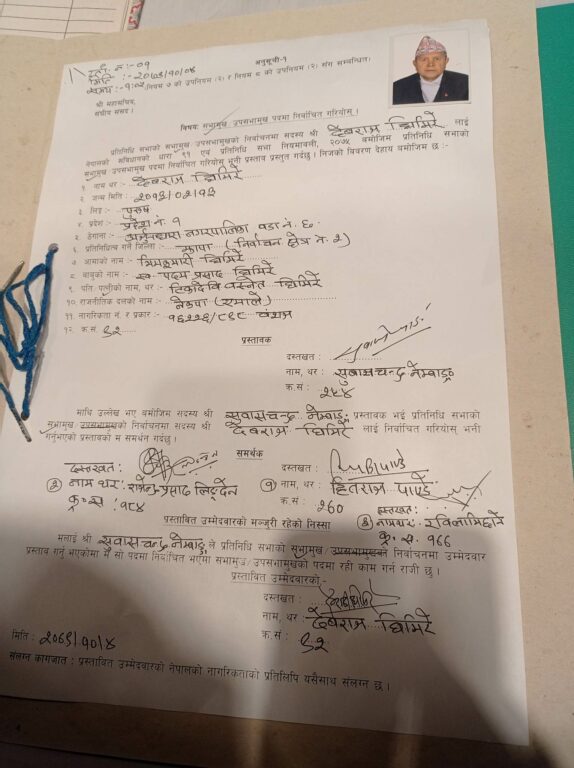 दर्ता नं :- ०१
मिति :- २०७९/१०/०४
समय :- १:०५
अनुसूची-१
(नियम ७ को उपनियम (२) र नियम ८ को उपनियम (२) संग सम्बन्धित)
श्री महासचिव,
संघीय संसद ।
विषय: सभामुख उपसभामुख पदमा निर्वाचित गरियोस् ।
प्रतिनिधि सभाको सभामुख उपसभामुखको निर्वाचनमा सदस्य श्री देवराज घिमिरे लाई
नेपालको संविधानको धारा ९१ एवं प्रतिनिधि सभा नियमावली, २०७५ बमोजिम प्रतिनिधि सभाको
सभामुख उपसभामुख पदमा निर्वाचित गरियोस् भनी प्रस्ताव प्रस्तुत गर्दछु । निजको विवरण देहाय बमोजिम छ :-
१. नाम थर : देवराज घिमिरे
२. जन्म मिति : २०१३/०२/१३
३. लिङ्ग : पुरुष
४. प्रदेश : प्रदेश नं. १
५. ठेगाना : नगरपालिका वडा नं. ६
६. प्रतिनिधित्व गर्ने जिल्ला : झापा (निर्वाचन क्षेत्र नं. २)
७. आमाको नाम : भिमकुमारी घिमिरे
८. बाबुको नाम : स्व. पदम प्रसाद घिमिरे
९. पति/पत्नीको नाम, थर : टिकादेवि बस्नेत घिमिरे
१०. राजनीतिक दलको नाम : नेकपा (एमाले)
११. नागरिकता नं. र प्रकार : १६२२६/८९८ वंशज
१२. क.सं. ९२
प्रस्तावक
दस्तखत :
नाम, थर : सुवासचन्द्र नेम्वाङ्ग
क.सं. : २५४
माथि उल्लेख भए बमोजिम सदस्य श्री सुवासचन्द्र नेम्वाङ्ग प्रस्तावक भई प्रतिनिधि सभाको
सभामुख उपसभामुखको निर्वाचनमा सदस्य श्री देवराज घिमिरे लाई निर्वाचित गरियोस् भनी
गर्नुभएको प्रस्तावको म समर्थन गर्दछु ।
समर्थक
दस्तखत :
दस्तखत :
② नाम थर : राजेन्द्र प्रसाद लिङ्देन
① नाम, थर : हितराज पाण्डे
क्र. स. : १८४
क.सं. : २६०
दस्तखत :
③ नाम थर : रवि लामिछाने
क्र. स. १६६
प्रस्तावित उम्मेदवारको मञ्जुरी रहेको निस्सा
मलाई श्री सुवासचन्द्र नेम्वाङ्ग ले प्रतिनिधि सभाको सभामुख / उपसभामुखको निर्वाचनमा उम्मेदवार
प्रस्ताव गर्नु भएकोमा म सो पदमा निर्वाचित भएमा सभामुख/ उपसभामुखको पदमा रही काम गर्न राजी छु ।
प्रस्तावित उम्मेदवारको:-
दस्तखत :
नाम, थर : देवराज घिमिरे
क.सं. : ९२
मिति : २०७९/१०/४
संलग्न कागजात : प्रस्तावित उम्मेदवारको नेपालको नागरिकताको प्रतिलिपि यसैसाथ संलग्न छ ।